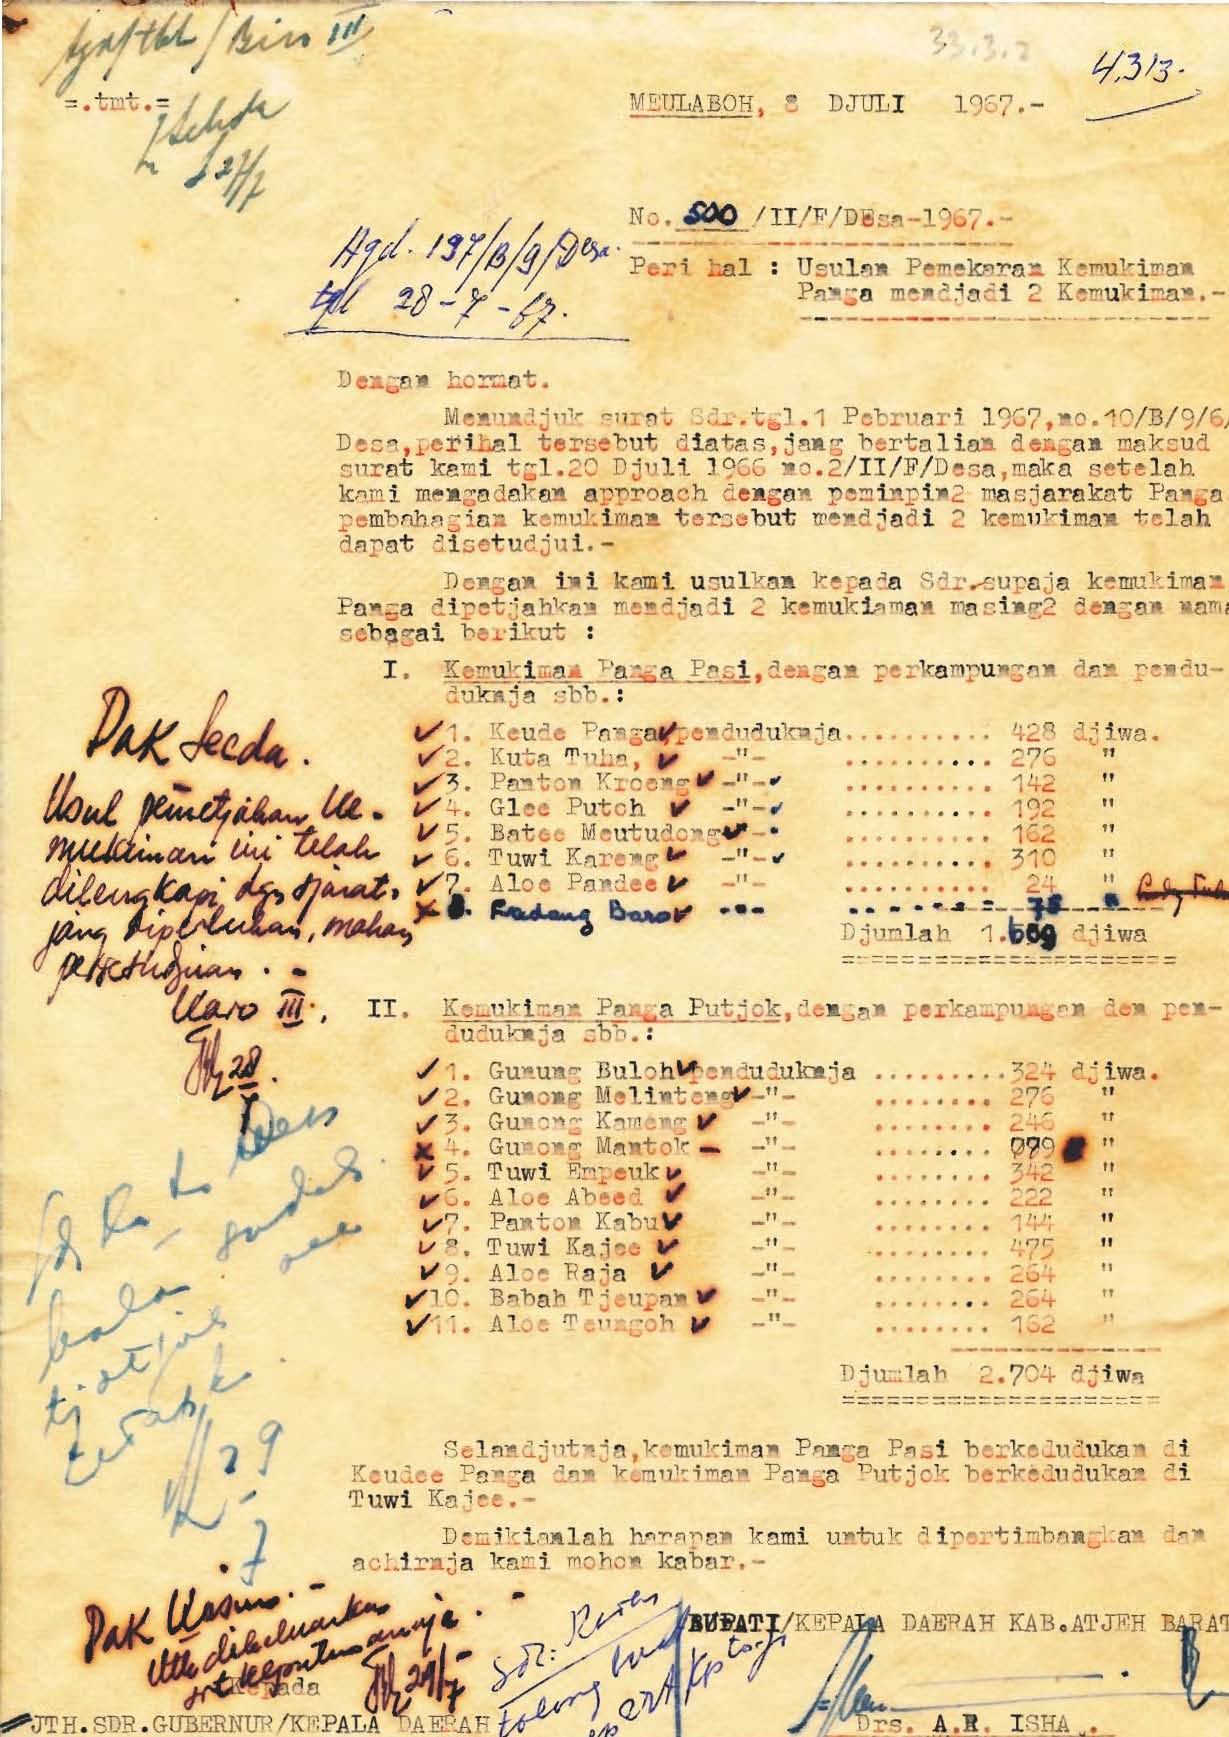 33.3.2
4313.
=.tmt.=
MEULABOH, 8 DJULI 1967.-
27/7
No. 500 /II/F/DEsa-1967.-
Hgd. 197/B/9/Desa.
tgl 28-7-67.
Peri hal : Usulan Pemekaran Kemukiman
Panga mendjadi 2 Kemukiman.-
Dengan hormat.
Menundjuk surat Sdr.tgl.1 Pebruari 1967,no.10/B/9/6/
Desa,perihal tersebut diatas,jang bertalian dengan maksud
surat kami tgl.20 Djuli 1966 no.2/II/F/Desa,maka setelah
kami mengadakan approach dengan peminpin2 masjarakat Panga
pembahagian kemukiman tersebut mendjadi 2 kemukiman telah
dapat disetudjui.-
Dengan ini kami usulkan kepada Sdr.supaja kemukiman
Panga dipetjahkan mendjadi 2 kemukiaman masing2 dengan nama
sebagai berikut :
I. Kemukiman Panga Pasi,dengan perkampungan dan pendu-
duknja sbb.:
1. Keude Panga, penduduknja.......... 428 djiwa.
2. Kuta Tuha, -"- .......... 276 "
3. Panton Kroeng -"- .......... 142 "
4. Glee Putoh -"- .......... 192 "
5. Batee Meutudong - .......... 162 "
6. Tuwi Kareng -"- .......... 310 "
7. Aloe Pandee -"- .......... 24 "
8. Ladang Baro 75 "
Djumlah 1.609 djiwa
Pak Secda.
Usul pemetjahan Ke-
mukiman ini telah
dilengkapi dgn sjarat2
jang diperlukan, mohon
persetudjuan.-
Karo III.
28
II. Kemukiman Panga Putjok,dengan perkampungan den pen-
duduknja sbb.:
1. Gunung Buloh penduduknja .........324 djiwa.
2. Gunong Melinteng -"- ........ 276 "
3. Gunong Kameng -"- ........ 246 "
4. Gunong Mantok -"- ........ "
5. Tuwi Empeuk -"- ........ 342 "
6. Aloe Abeed -"- ........ 222 "
7. Panton Kabu -"- ........ 144 "
8. Tuwi Kajee -"- ........ 475 "
9. Aloe Raja -"- ........ 264 "
10. Babah Tjeupan -"- ........ 264 "
11. Aloe Teungoh -"- ........ 162 "
Djumlah 2.704 djiwa
29
7
Selandjutnja,kemukiman Panga Pasi berkedudukan di
Keudee Panga dan kemukiman Panga Putjok berkedudukan di
Tuwi Kajee.-
Demikianlah harapan kami untuk dipertimbangkan dan
achirnja kami mohon kabar.-
Pak
Utk dikeluarkan
srt keputusannja.
29/7
Sdr:
tolong
BUPATI/KEPALA DAERAH KAB.ATJEH BARAT
Kepada
JTH.SDR.GUBERNUR/KEPALA DAERAH
Drs. A.R. ISHA .